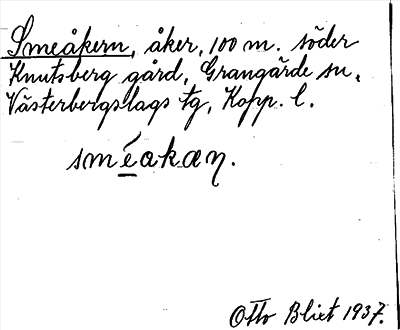 Smeåkern, åker, 100 m. söder
Knutsberg gård, Grangärde sn,
Västerbergslags tg, Kopp. l.
sméakæη.
Otto Blixt 1937.